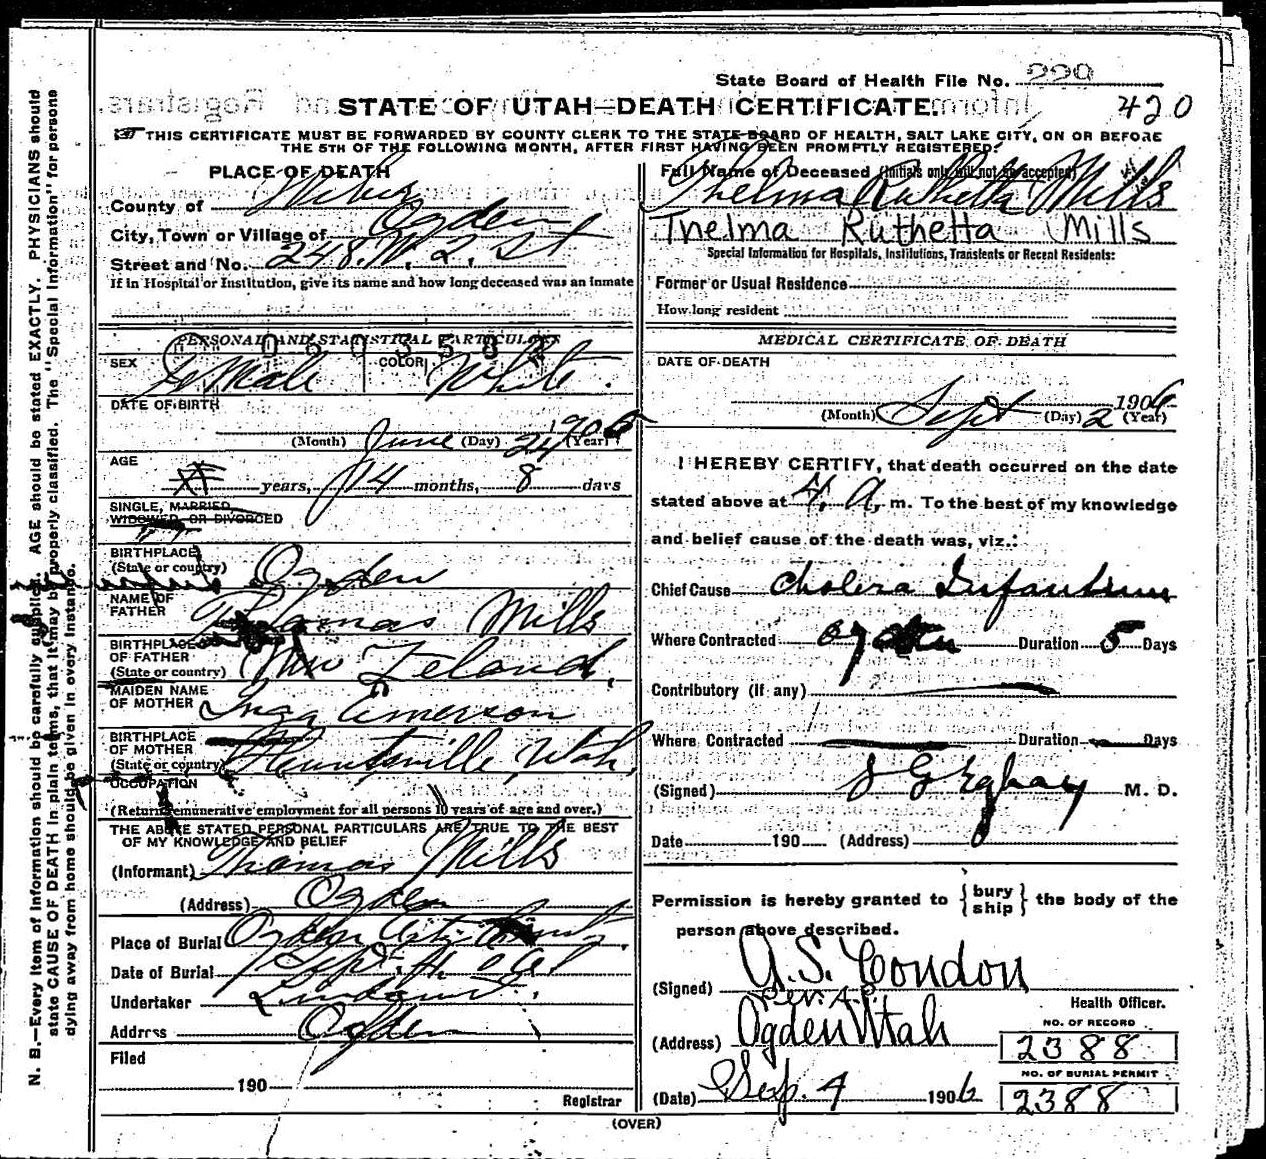 State Board of Health File No. 220
420
STATE OF UTAH—DEATH CERTIFICATE.
THIS CERTIFICATE MUST BE FORWARDED BY COUNTY CLERK TO THE STATE BOARD OF HEALTH, SALT LAKE CITY, ON OR BEFORE
THE 5TH OF THE FOLLOWING MONTH, AFTER FIRST HAVING BEEN PROMPTLY REGISTERED.
PLACE OF DEATH
County of Weber
City, Town or Village of Ogden
Street and No. 248. W. 2. St
If in Hospital or Institution, give its name and how long deceased was an inmate
PERSONAL AND STATISTICAL PARTICULARS
SEX Female COLOR White.
DATE OF BIRTH
(Month) June (Day) 24 (Year) 1905
AGE
years, 14 months, 8 days
SINGLE, MARRIED,
WIDOWED, OR DIVORCED
BIRTHPLACE
(State or country) Ogden
NAME OF
FATHER Thomas Mills
BIRTHPLACE
OF FATHER
(State or country) New Zeland,
MAIDEN NAME
OF MOTHER Inga Emerson
BIRTHPLACE
OF MOTHER
(State or country) Huntsville, Utah,
OCCUPATION
(Return remunerative employment for all persons 10 years of age and over.)
THE ABOVE STATED PERSONAL PARTICULARS ARE TRUE TO THE BEST
OF MY KNOWLEDGE AND BELIEF
(Informant) Thomas Mills
(Address) Ogden
Place of Burial Ogden City
Date of Burial Sept. 4.
Undertaker Lindquist.
Address Ogden
Filed
190
Registrar
Full Name of Deceased (Initials only will not be accepted)
Thelma Ruthetta Mills
Thelma Ruthetta Mills
Special Information for Hospitals, Institutions, Transients or Recent Residents:
Former or Usual Residence
How long resident
MEDICAL CERTIFICATE OF DEATH
DATE OF DEATH
(Month) Sept (Day) 2 1906 (Year)
I HEREBY CERTIFY, that death occurred on the date
stated above at 4. A. m. To the best of my knowledge
and belief cause of the death was, viz.:
Chief Cause Cholera Infantum
Where Contracted Ogden Duration 5 Days
Contributory (If any)
Where Contracted Duration Days
(Signed) M. D.
Date 190 (Address)
Permission is hereby granted to { bury ship } the body of the
person above described.
(Signed) A. S. Condon
Health Officer.
(Address) Ogden Utah
NO. OF RECORD
2388
NO. OF BURIAL PERMIT
2388
(Date) Sep. 4 1906
(OVER)
N. B.—Every item of information should be carefully supplied. AGE should be stated EXACTLY. PHYSICIANS should
state CAUSE OF DEATH in plain terms, that it may be properly classified. The "Special Information" for persons
dying away from home should be given in every instance.